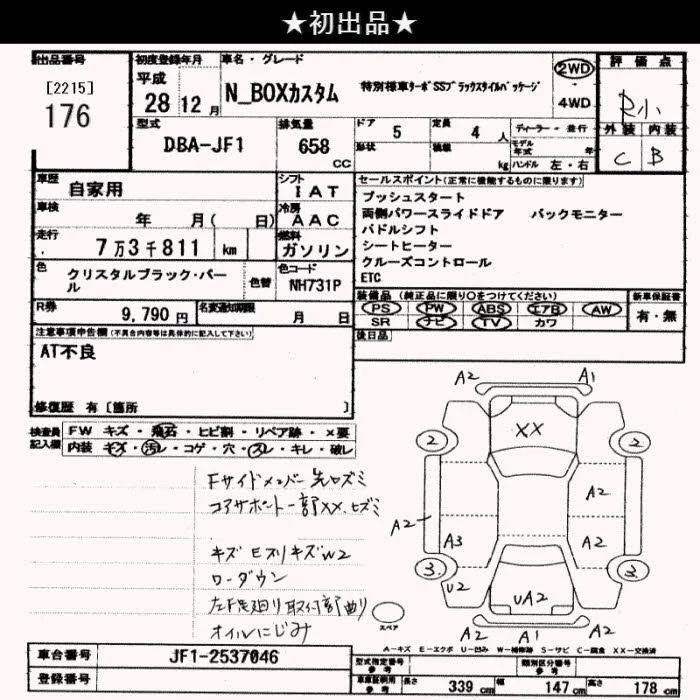 ★初出品★
出品番号
[2215]
176
初度登録年月
平成
28 12 月
車名・グレード
N_BOXカスタム
特別仕様車ターボSSブラックスタイルパッケージ
2WD
4WD
評価点
外装 内装
C B
型式
DBA-JF1
排気量
658 CC
ドア 5
定員 4 人
ディーラー・並行
形状
積載 kg
モデル年式 年
ハンドル 左・右
車歴 自家用
シフト I A T
セールスポイント(正常に機能するものに限ります)
プッシュスタート
両側パワースライドドア バックモニター
パドルシフト
シートヒーター
クルーズコントロール
ETC
車検 年 月( 日)
冷房 A A C
走行 7万3千811 km
燃料 ガソリン
色 クリスタルブラック・パール
色替
色コード NH731P
装備品 (純正品に限り○をつけてください)
新車保証書
PS PW ABS エアB AW
SR ナビ TV カワ
有・無
R券 9,790 円
名変通知期限 月 日
後日品
注意事項申告欄 (不具合内容等は具体的に記入して下さい)
AT不良
修復歴 有 [箇所 ]
検査員記入欄
FW キズ・飛石・ヒビ割・リペア跡・×要
内装 キズ・汚レ・コゲ・穴・スレ・キレ・破レ
Fサイドメンバー先ヒズミ
コアサポート一部XX、ヒズミ
キズ Eスリキズ W2
ローダウン
左F足廻り取付部曲り
オイルにじみ
A2 A1
2 XX 2
A2
A2
A3 A2
3 3
U2 UA2
A2 A1 A2
スペア
A-キズ E-エクボ U-凹み W-補修跡 S-サビ C-腐食 XX-交換済
車台番号 JF1-2537046
登録番号
型式指定番号 参考
類別区分番号 参考
車庫証明用 参考
長さ 339 cm
幅 147 cm
高さ 178 cm